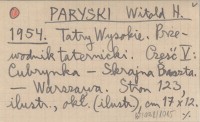 PARYSKI Witold H.
1954. Tatry Wysokie. Prze-
wodnik taternicki. Część V:
Cubrynka – Skrajna Baszta.
– Warszawa. Stron 123,
ilustr., okł. (ilustr), cm 17 x 12.